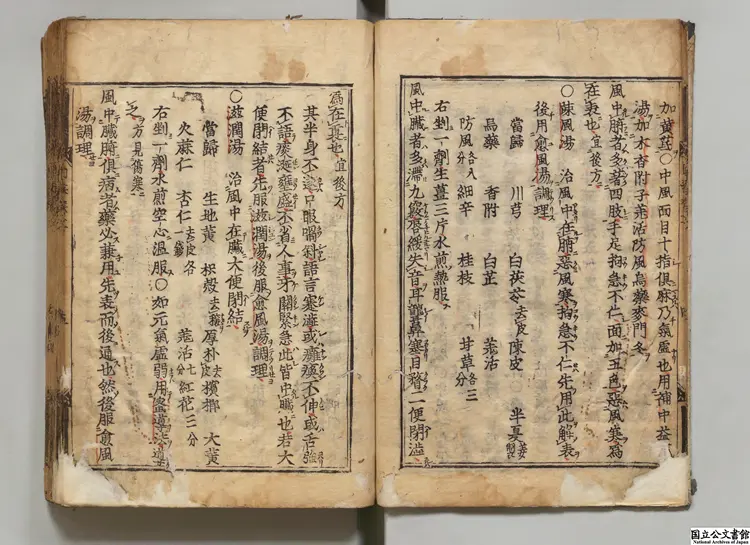 加黃芪〇中風面目十指俱麻乃氣虛也用補中益
湯加木香附子羌活防風烏藥麥門冬
風中腑者多著四肢手足拘急不仁面加五色惡風寒為
在表也宜後方
〇疎風湯 治風中在腑惡風寒拘急不仁先用此解表
後用愈風湯調理
當歸 川芎 白茯苓去皮 陳皮 半夏姜製
烏藥 香附 白芷 羌活
防風各八分 細辛 桂枝 甘草各三分
右剉一劑生薑三片水煎熱服
風中臟者多滯九竅唇緩失音耳聾鼻塞目瞀二便閉澁
為在裏也宜後方
其半身不遂口眼喎斜語言蹇澁或癱瘓不伸或舌強
不語痰涎壅盛不省人事牙關緊急此皆中臟也若大
便閉結者先服滋潤湯後服愈風湯調理
〇滋潤湯 治風中在臟大便閉結
當歸 生地黃 枳殼去穰 厚朴去皮 檳榔 大黃
火麻仁 杏仁去皮各一錢 羌活七分 紅花三分
右剉一劑水煎空心溫服〇如元氣虛弱用蜜導法導
之方見傷寒
風中臟腑俱病者藥必兼用先表而後通也然後服愈風
湯調理
国立公文書館
National Archives of Japan